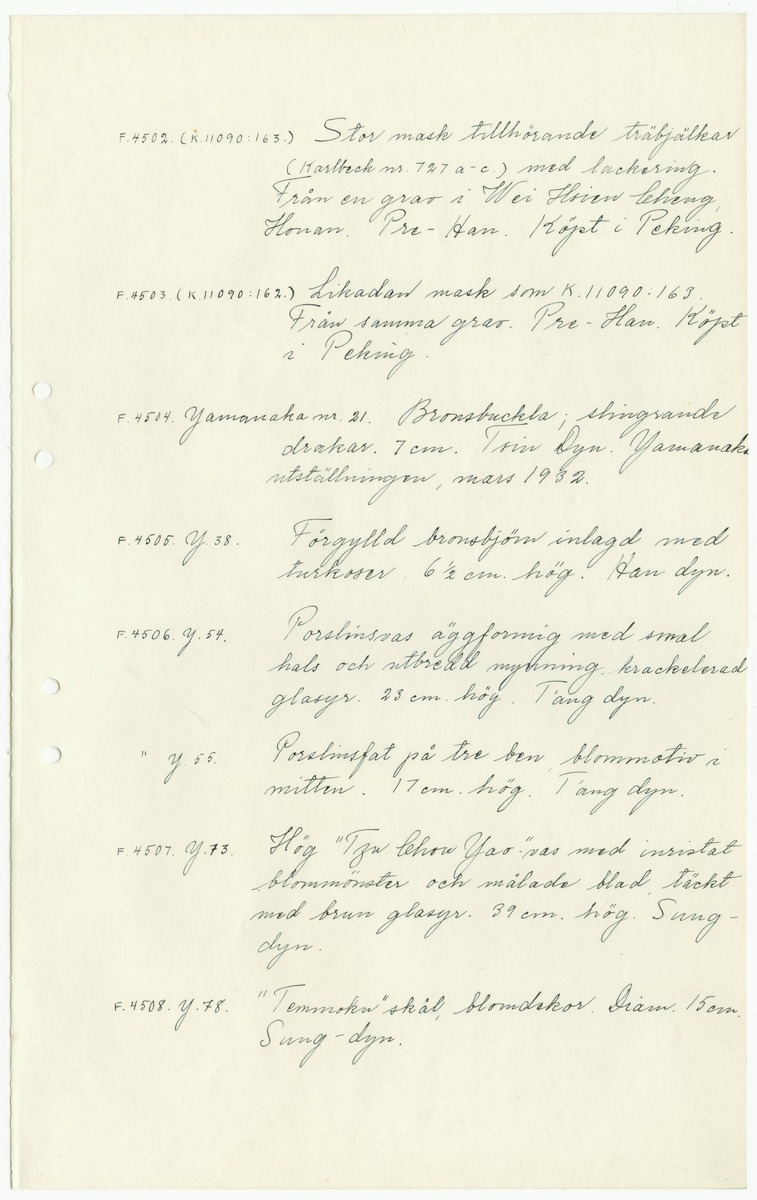 F.4502. (K.11090:163.) Stor mask tillhörande träbjälkar
(Karlbeck nr. 727 a-c.) med lackering.
Från en grav i Wei Hsien Cheng,
Honan. Pre-Han. Köpt i Peking.
F.4503. (K.11090:162.) Likadan mask som K.11090:163.
Från samma grav. Pre-Han. Köpt
i Peking.
F.4504. Yamanaka nr. 21. Bronsbuckla; slingrande
drakar. 7 cm. Tsin Dyn. Yamanaka
utställningen, mars 1932.
F.4505. Y.38. Förgylld bronsbjörn inlagd med
turkoser. 6 1/2 cm. hög. Han dyn.
F.4506. Y.54. Porslinsvas äggformig med smal
hals och utbredd mynning. krackelerad
glasyr. 23 cm. hög. T'ang dyn.
" Y.55. Porslinsfat på tre ben, blommotiv i
mitten. 17 cm. hög. T'ang dyn.
F.4507. Y.73. Hög "Tzu Chou Yao"-vas med inristat
blommönster och målade blad, täckt
med brun glasyr. 39 cm. hög. Sung-
dyn.
F.4508. Y.78. "Temmoku" skål, blomdekor. Diam. 15 cm.
Sung-dyn.